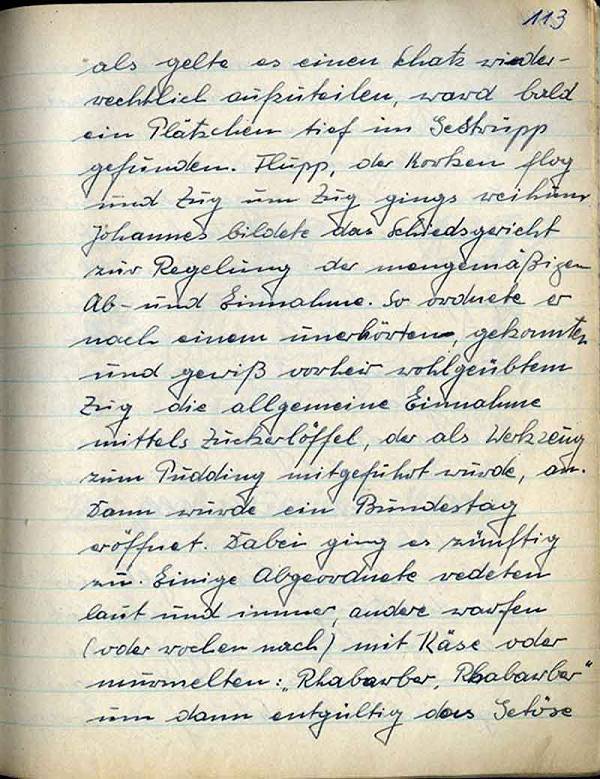 113
als gelte es einen Schatz wieder-
rechtlich aufzuteilen, ward bald
ein Plätzchen tief im Gestrüpp
gefunden. Flupp, der Korken flog
und Zug um Zug gings reihum
Johannes bildete das Schiedsgericht
zur Regelung der mengemäßigen
Ab- und Einnahme. So ordnete er
nach einem unerhörten, gekonnten
und gewiß vorher wohlgeübtem
Zug die allgemeine Einnahme
mittels Zuckerlöffel, der als Werkzeug
zum Pudding mitgeführt wurde, an.
Dann wurde ein Bundestag
eröffnet. Dabei ging es zünftig
zu. Einige Abgeordnete redeten
laut und immer, andere warfen
(oder rochen nach) mit Käse oder
murmelten: „Rhabarber, Rhabarber"
um dann entgültig das Getöse